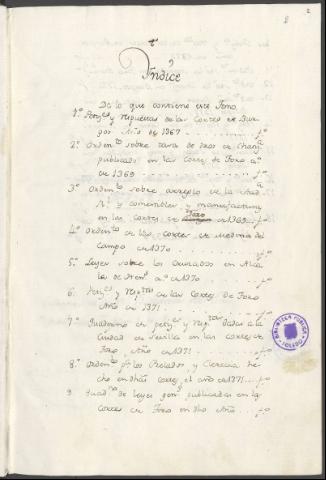 2
2
Índice
De lo que contiene este Tomo
1.º Petiz.s y respuestas de las Cortes de Bur-
gos Año de 1367 f.º
2.º Orden.to sobre
publicado en las Cortes de Toro a.º
de 1369 f.º
3.º Orden.to sobre arreglo de la
R.l y comestibles y manufacturas
en las Cortes de Toro de 1369 f.º
4.º Orden.to de las Cortes de Medina del
Campo de 1370 f.º
5.º Leyes sobre los Escusados en Alca-
lá de Hen.s a.º de 1370
6. Petiz.s y resp.tas de las Cortes de Toro
Año de 1371 f.º
7.º Quaderno de petiz.s y resp.tas dadas a la
Ciudad de Sevilla en las Cortes de
Toro Año de 1371 f.º
8.º Orden.to p.a los Prelados y Clerecia he-
cho en dhas Cortes el año de 1371 f.º
9. Quad.no de Leyes gen.s publicadas en las
Cortes de Toro en dho Año f.º
BIBLIOTECA PUBLICA
TOLEDO